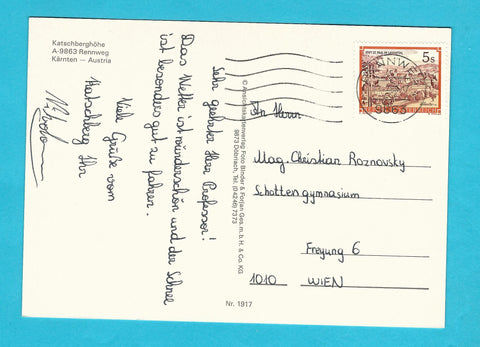 Katschberghöhe
A-9863 Rennweg
Kärnten – Austria
Sehr geehrter Herr Professor!
Das Wetter ist wünderschön und der Schnee
ist besonders gut zu fahren.
Viele Grüße vom
Katschberg Ihr
© Ansichtskartenverlag Foto Binder & Florjan Ges. m. b. H. & Co. KG
9873 Döbriach, Tel. (04246) 7373
Nr. 1917
5s
RENNWEG
9863
An Herrn
Mag. Christian Roznovsky
Schottengymnasium
Freyung 6
1010 WIEN